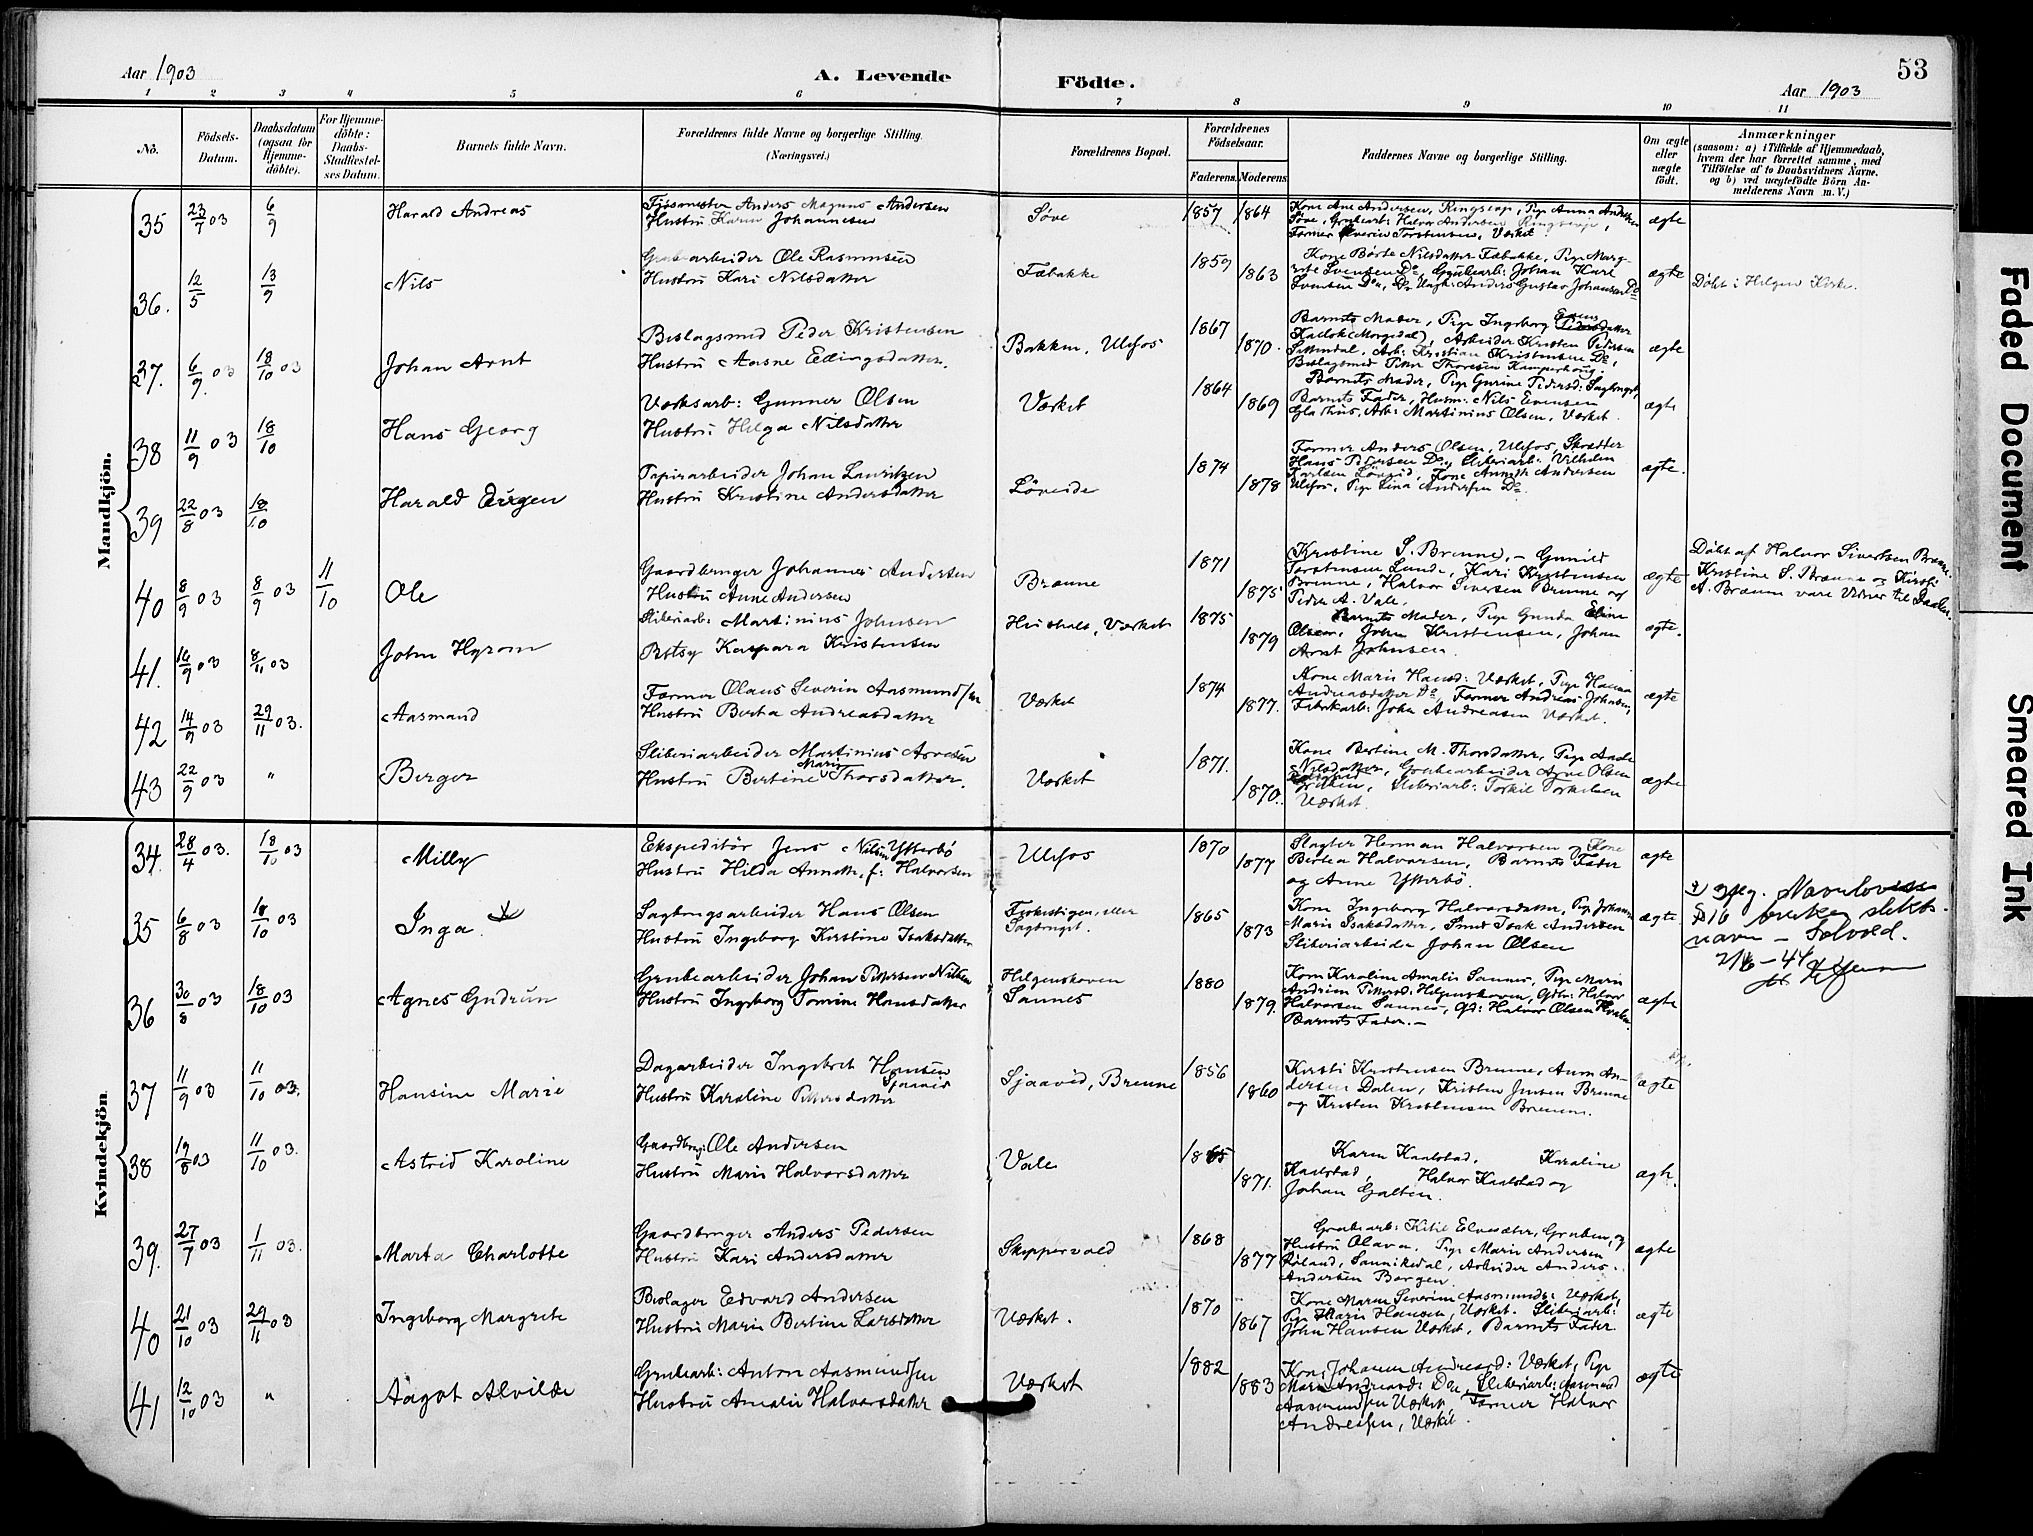 Aar 1903 A. Levende Födte. Aar 1903 53
1 2 3 4 5 6 7 8 9 10 11
No.
Födsels-Datum.
Daabsdatum (ogsaa for Hjemme-döbte).
For Hjemme-döbte: Daabs-Stadfæstel-ses Datum.
Barnets fulde Navn.
Forældrenes fulde Navne og borgerlige Stilling. (Næringsvei.)
Forældrenes Bopæl.
Forældrenes Födselsaar.
Faderens. Moderens.
Faddernes Navne og borgerlige Stilling.
Om ægte eller uægte födt.
Anmærkninger
(saasom: a) i Tilfælde af Hjemmedaab, hvem der har forrettet samme, med Tilföielse af to Daabsvidners Navne, og b) ved uægtefödte Börn An-melderens Navn m. V.)
Mandkjön.
35 23/7 03 6/9 Harald Andreas
Fjösmester Anders Magnus Andersen
Hustru Karen Johannesen
Søve 1857 1864
Kone Ane Andersen, Ringsevja, Pige Anna Andersen
Søve, Grubearb: Halvor Andersen
Former Severin Torstensen, Værket
ægte
36. 12/5 13/9 Nils
Grubearbeider Ole Rasmussen
Hustru Kari Nilsdatter
Fæbakke 1859 1863
Kone Børte Nilsdatter Fæbakke, Pige Marg-
rete Svensen Do, Grubearb: Johan Karl
Svensen Do, Anders Gustav Johansen Do
ægte Döbt i Helgen Kirke.
37. 6/9 03 18/10 03 Johan Arnt
Beslagsmed Peder Kristensen
Hustru Aasne Edingsdatter.
Bakken, Ulefos 1867 1870.
Barnets Moder, Pige Ingeborg
(Morgedal), Arbeider Kristen Pedersen
Arb: Kristian Kristensen Do,
Beslagsmed Peter Thoresen
ægte
38 11/9 03 18/10 Hans Georg
Værksarb: Gunner Olsen
Hustru Helga Nilsdatter
Værket 1864 1869
Barnets Moder, Pige Gurine Pedersd: Sagbruget,
Barnets Fader, Husm: Nils Evensen
Glashus, Arb: Martinius Olsen, Værket.
ægte
39 22/8 03 18/10 Harald Eugen
Papirarbeider Johan Lauritzen
Hustru Kristine Andersdatter
Løveide 1874 1878
Former Anders Olsen, Ulefos, Skredder
Hans Pedersen Do, Sliberiarb: Vilhelm
Karlsen Løveid, Kone Annette Andersen
Ulefos, Pige Lina Andersen Do.
ægte.
40 8/9 03 8/9 03 11/10 Ole
Gaardbruger Johannes Andersen
Hustru Anne Andersen
Brænne 1871 1875
Kristine S. Brenne, – Gunild
Torstensen Lunde, Kari Kristensen
Brenne, Halvor Siversen Brenne og
Peder A. Vale.
ægte
Döbt af Halvor Sivertsen Brænne.
Kristine S. Brænne og Kirsti
A. Brænne vare Vidner til Daaben.
41. 16/9 03 8/11 03 John Hyrom
Sliberiarb: Martinius Johnsen
Betsy Kaspara Kristensen
Værket 1875 1879
Barnets Moder, Pige Gunda Eline
Olsen, John Kristensen, Johan
Arnt Johnsen.
ægte.
42 14/9 03 29/11 03. Aasmund
Former Olaus Severin Aasmundsen
Hustru Berta Andreasdatter
Værket 1874 1877.
Kone Marie Hansd: Værket, Pige Hanna
Andreasdatter Do, Former Andreas Johnsen,
Fabrikarb: John Andreasen Værket.
ægte
43 22/9 03 " Berger
Sliberiarbeider Martinius Arvesen
Hustru Bertine Marie Thorsdatter.
Værket 1871. 1870.
Kone Bertine M. Thorsdatter, Pige Aade
Nilsdatter, Grubearbeider Arne Olsen
Sliberiarb: Torkil Torkelsen
Værket.
ægte
Kvindekjön.
34. 28/4 03. 18/10 03 Milly
Ekspeditør Jens Nilsen Ytterbö
Hustru Hilda Annette, f: Halvorsen
Ulefos 1870 1877
Slagter Herman Halvorsen, Kone
Bertea Halvorsen, Barnets Fader
og Anne Ytterbö.
ægte
35 6/8 03 18/10 03 Inga
Sagbrugsarbeider Hans Olsen
Hustru Ingeborg Kirstine Isaksdatter
Sagbruget. 1865 1873
Kone Ingeborg Halvorsdatter, Pige Johanne
Marie Isaksdatter, Smed Isak Andersen
Sliberiarbeider Johan Olsen
ægte
Navneloven
§ 16 slekts-
navn – Solvold.
36 30/8 03 18/10 03 Agnes Gudrun
Grubearbeider Johan Pettersen Nilsen
Hustru Ingeborg Tomine Hansdatter
Helgenshoven
Sannes 1880 1879.
Kone Karoline Amalie Sannes, Pige Marie
Andrine Pettersd: Helgenshoven, Gdbr: Halvor
Halvorsen Sannes, Gd: Halvor Olsen
Barnets Fader. –
ægte
37 11/9 03 11/10 03. Hansine Marie
Dagarbeider Ingebret Hansen Sjaavid
Hustru Karoline Pedersdatter
Sjaavid, Brenne 1856 1860
Kirsti Kristensen Brenne, Anne An-
dersen Dalen, Kristen Jensen Brenne
og Kristen Kristensen Brenne.
ægte
38 19/8 03 11/10 03. Astrid Karoline
Gaardbrug: Ole Andersen
Hustru Marie Halvorsdatter
Vale 1865 1871.
Karen Kaalstad, Karoline
Kaalstad, Halvor Kaalstad og
Johan Galten.
ægte.
39. 27/7 03 1/11 03. Marta Charlotte
Gaardbruger Anders Pedersen
Hustru Kari Andersdatter
Skippervold 1868 1877
Grubearb: Kitil Elvesæter, Gruben, og
Hustru Olava, Pige Marie Andersen
Røland, Sannikedal, Arbeider Anders
Andersen Borgen.
ægte
40 21/10 03 29/11 03 Ingeborg Margrete
Beslager Edvard Andersen
Hustru Marie Bertine Larsdatter
Værket. 1870 1867
Kone Maren Severine Aasmunds: Værket,
Pige Marie Hansen, Værket. Sliberiarb:
John Hansen Værket, Barnets Fader
ægte
41 12/10 03 " Aagot Alvilde
Grubearb: Anton Aasmundsen
Hustru Amalie Halvorsdatter
Værket 1882 1883
Kone Johanne Andreasd: Værket, Pige
Marie Andreasd: Do, Sliberiarb: Aasmund
Aasmundsen Værket, Former Halvor
Andreasen, Værket.
ægte
Faded Document
Smeared Ink